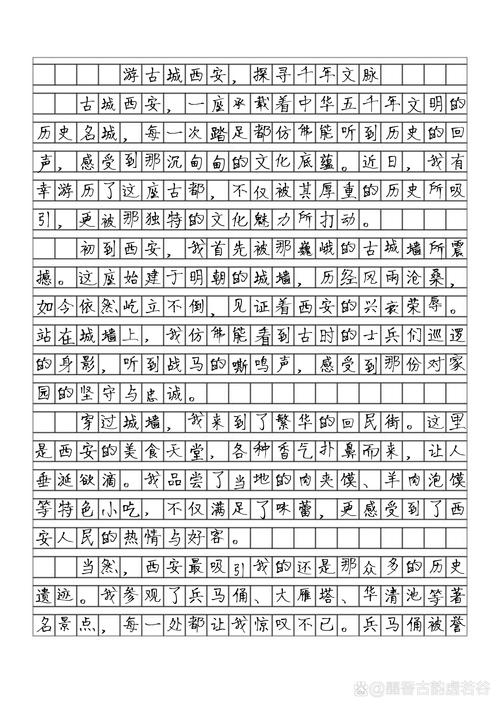 游古城西安，探寻千年文脉
古城西安，一座承载着中华五千年文明的
历史名城，每一次踏足都仿佛能听到历史的回
声，感受到那沉甸甸的文化底蕴。近日，我有
幸游历了这座古都，不仅被其厚重的历史所吸
引，更被那独特的文化魅力所打动。
初到西安，我首先被那巍峨的古城墙所震
撼。这座始建于明朝的城墙，历经风雨沧桑，
如今依然屹立不倒，见证着西安的兴衰荣辱。
站在城墙上，我仿佛能看到古时的士兵们巡逻
的身影，听到战马的嘶鸣声，感受到那份对家
园的坚守与忠诚。
穿过城墙，我来到了繁华的回民街。这里
是西安的美食天堂，各种香气扑鼻而来，让人
垂涎欲滴。我品尝了当地的肉夹馍、羊肉泡馍
等特色小吃，不仅满足了味蕾，更感受到了西
安人民的热情与好客。
当然，西安最吸引我的还是那众多的历史
遗迹。我参观了兵马俑、大雁塔、华清池等著
名景点，每一处都让我惊叹不已。兵马俑被誉
古韵虚若谷